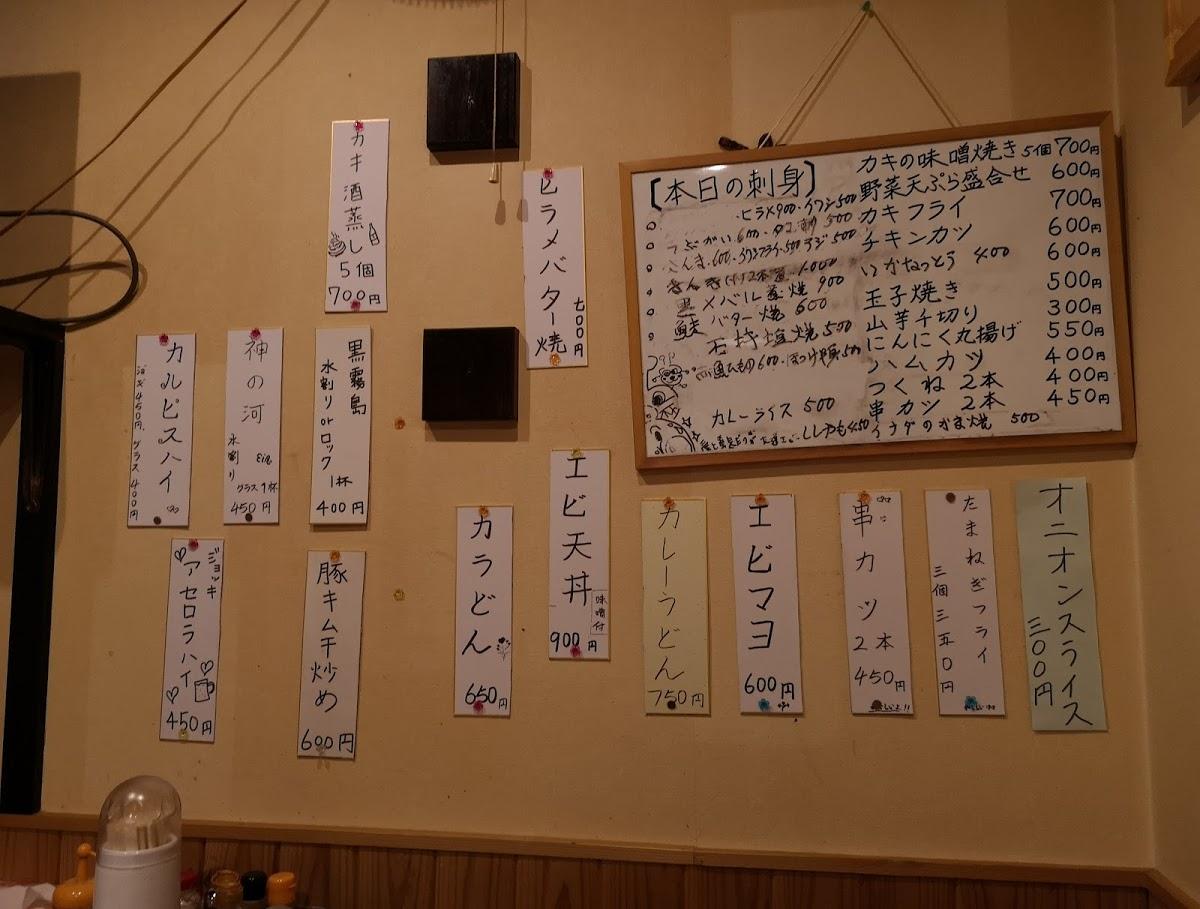 カキ酒蒸し
5個
700円
ヒラメバター焼
七〇〇円
カルピスハイ
ジョッキ450円.グラス400円
神の河
水割り
グラス1杯
450円
黒霧島
水割りorロック
1杯
400円
ジョッキ
アセロラハイ
450円
豚キムチ炒め
600円
カラどん
650円
エビ天丼
味噌付
900円
カレーうどん
750円
エビマヨ
600円
串カツ
2本
450円
たまねぎフライ
三個三五〇円
オニオンスライス
三〇〇円
[本日の刺身]
ヒラメ900・イワシ500
つぶがい600・タコ刺500
さんま・600・
黒メバル煮焼900
鮭バター焼600
石持塩焼500
カレーライス 500
カキの味噌焼き5個700円
野菜天ぷら盛合せ 600円
カキフライ 700円
チキンカツ 600円
いかなっとう 400 600円
玉子焼き 500円
山芋千切り 300円
にんにく丸揚げ 550円
ハムカツ 400円
つくね2本 400円
串カツ 2本 450円
イナダのかま焼 500